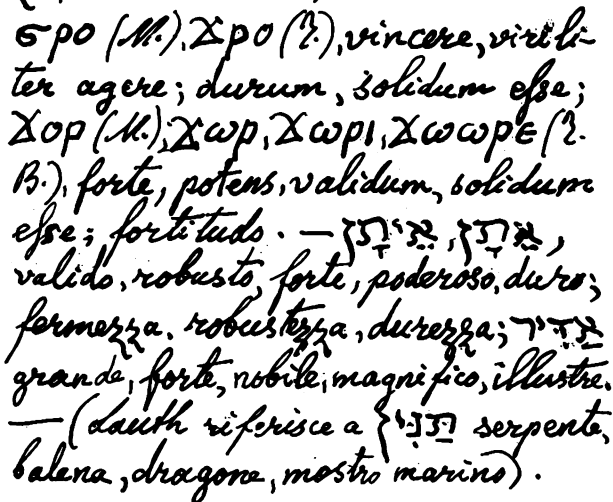 ϭⲣⲟ (M.), ϫⲣⲟ (T.), vincere, virili-
ter agere; durum, solidum esse;
ϫⲟⲣ (M.), ϫⲱⲣ, ϫⲱⲣⲓ, ϫⲱⲱⲣⲉ (T.
B.), forte, potens, validum, solidum
esse; fortitudo. — אֵיתָן, אֵתָן,
valido, robusto, forte, poderoso, duro;
fermezza, robustezza, durezza; אַדִּיר
grande, forte, nobile, magnifico, illustre.
— (Lauth riferisce a תַנִּין serpente,
balena, dragone, mostro marino).